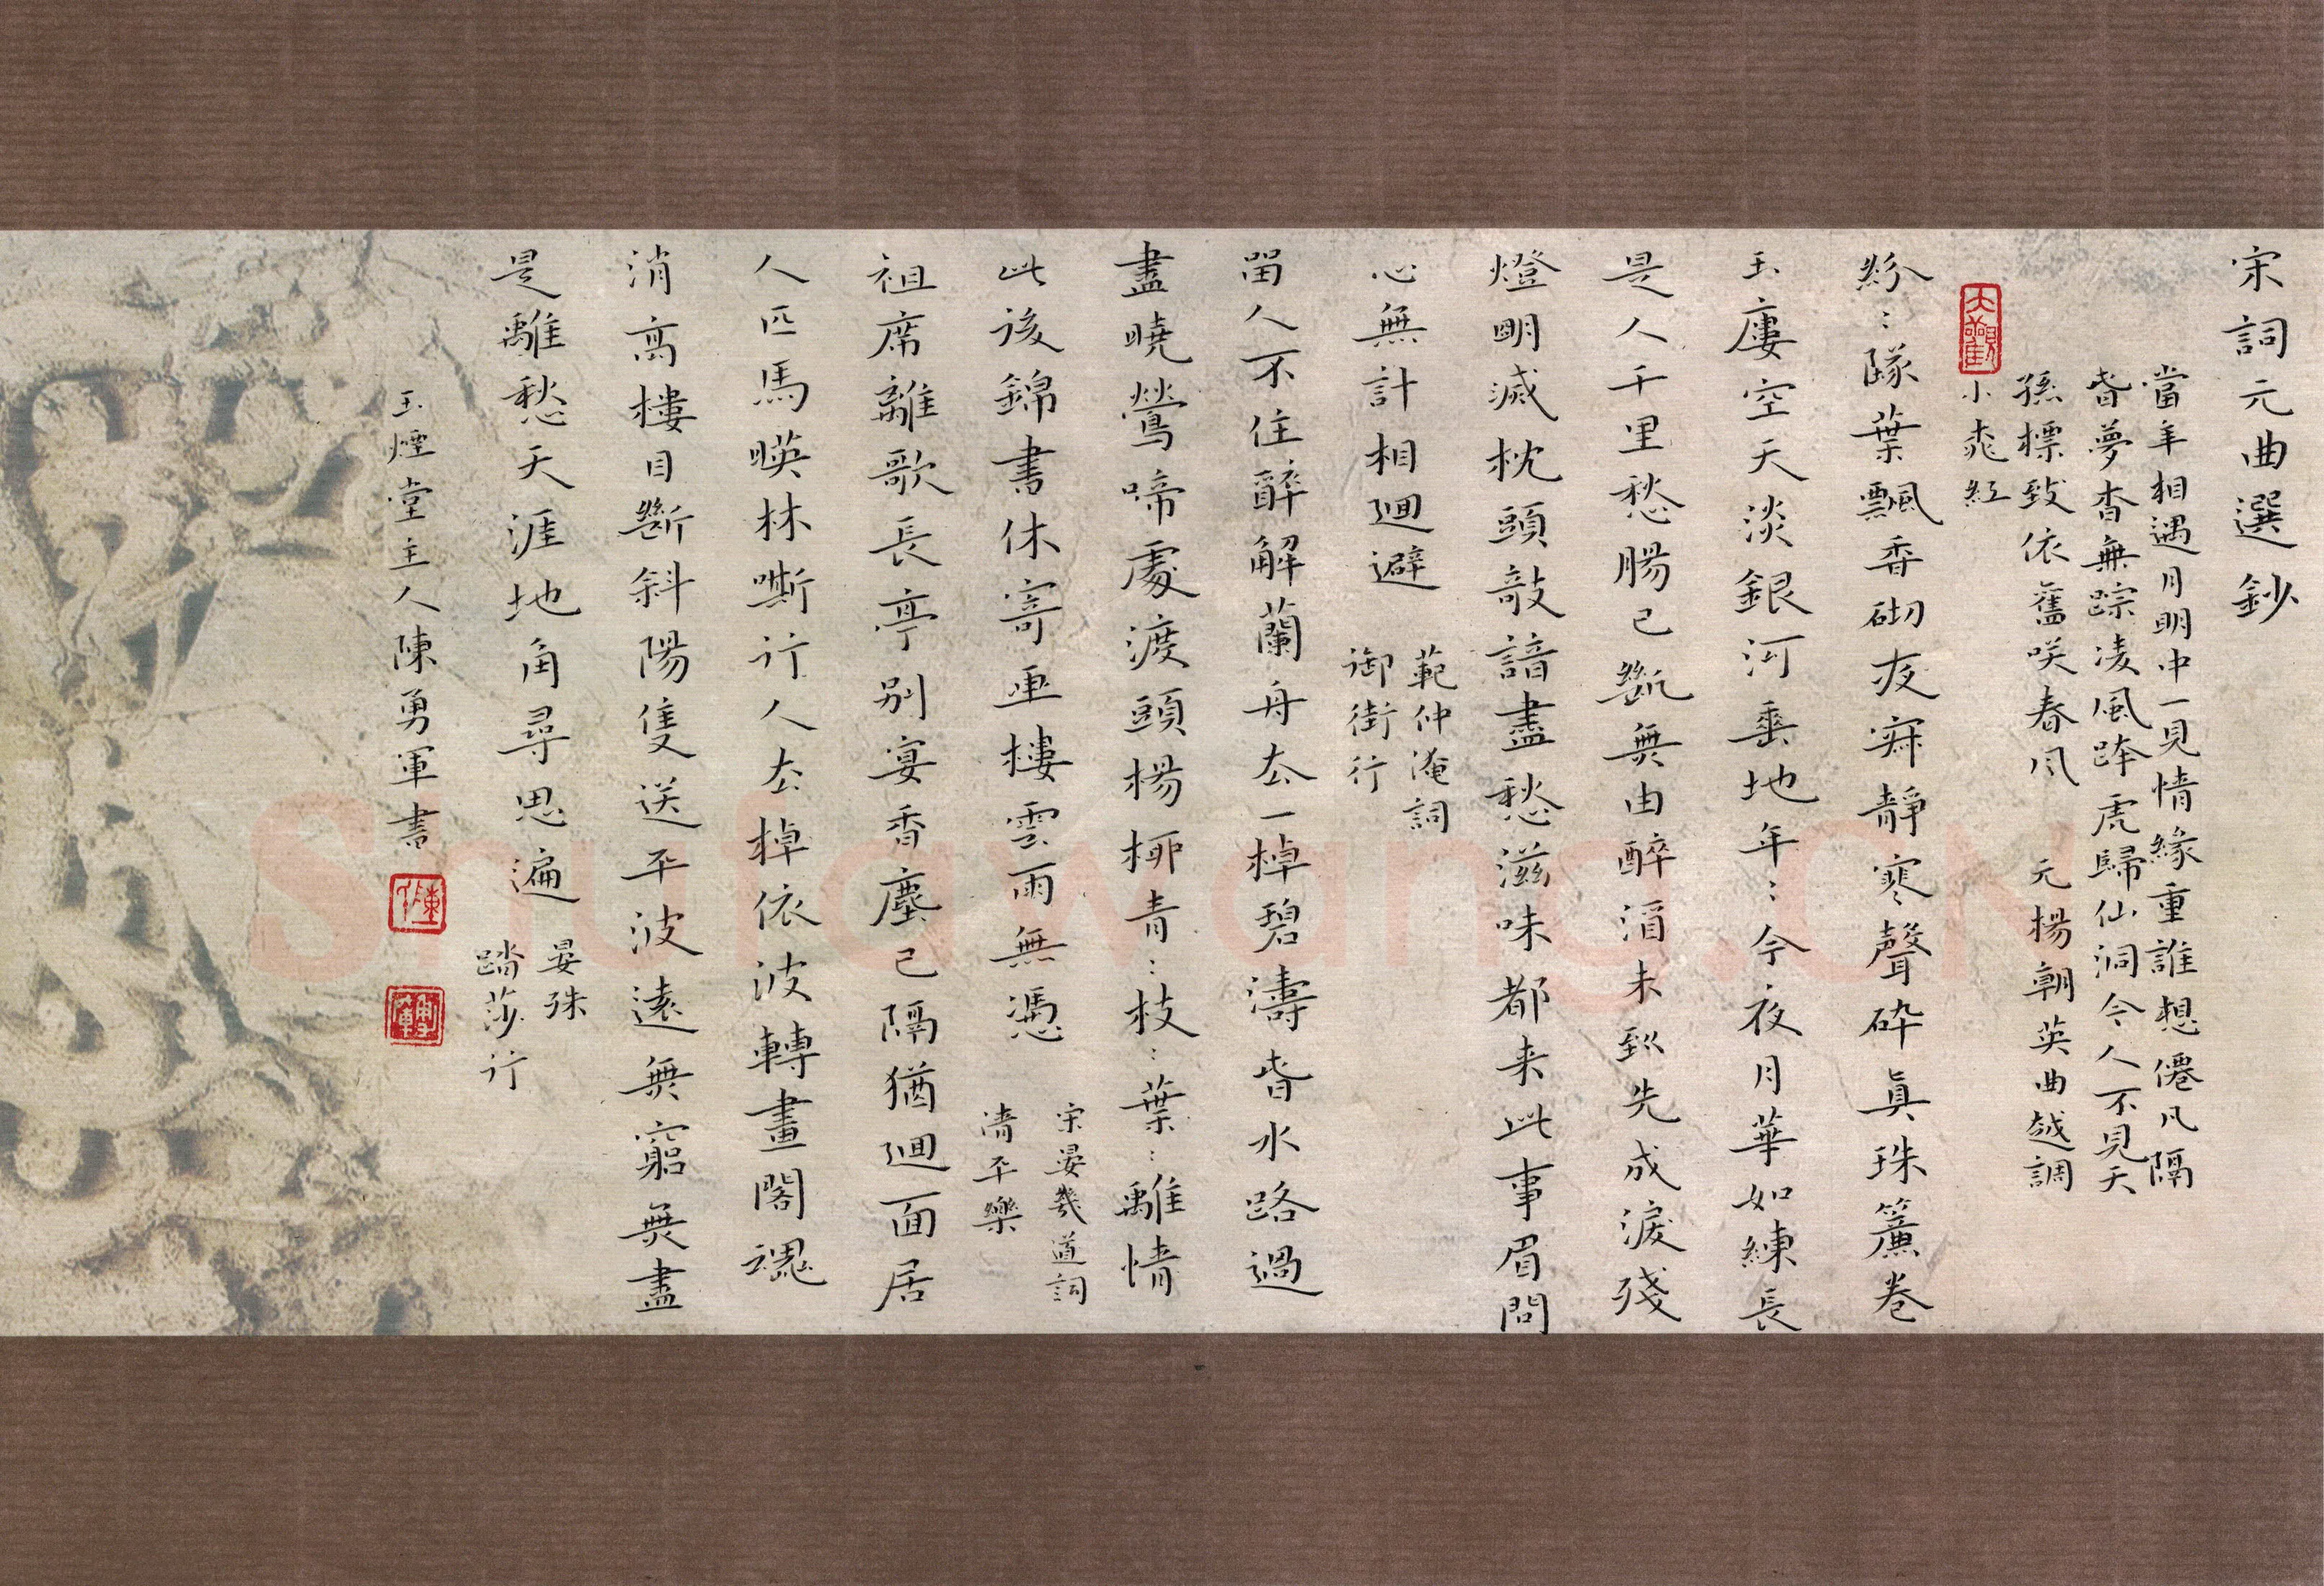 宋詞元曲選鈔
當年相遇月明中一見情緣重誰想僊凡隔
昏夢杳無踪凌風跨虎歸仙洞今人不見天
孫標致依舊咲春風 元楊朝英曲越調
小桃紅
紛〻墜葉飄香砌夜寂靜寒聲碎真珠簾卷
玉廔空天淡銀河垂地年〻今夜月華如練長
是人千里愁腸已斷無由醉酒未到先成淚殘
燈明滅枕頭敧諳盡愁滋味都来此事眉間
心無計相迴避 範仲淹詞
御街行
畱人不住醉解蘭舟去一棹碧濤昏水路過
盡曉鶯啼處渡頭楊柳青〻枝〻葉〻離情
此後錦書休寄畫樓雲雨無憑 宋晏幾道詞
清平樂
祖席離歌長亭別宴香塵已隔猶迴面居
人匹馬暎林嘶行人去棹依波轉畫閣魂
消高樓目斷斜陽隻送平波遠無窮無盡
是離愁天涯地角尋思遍 晏殊
踏莎行
玉煙堂主人陳勇軍書
Shufawang.CN